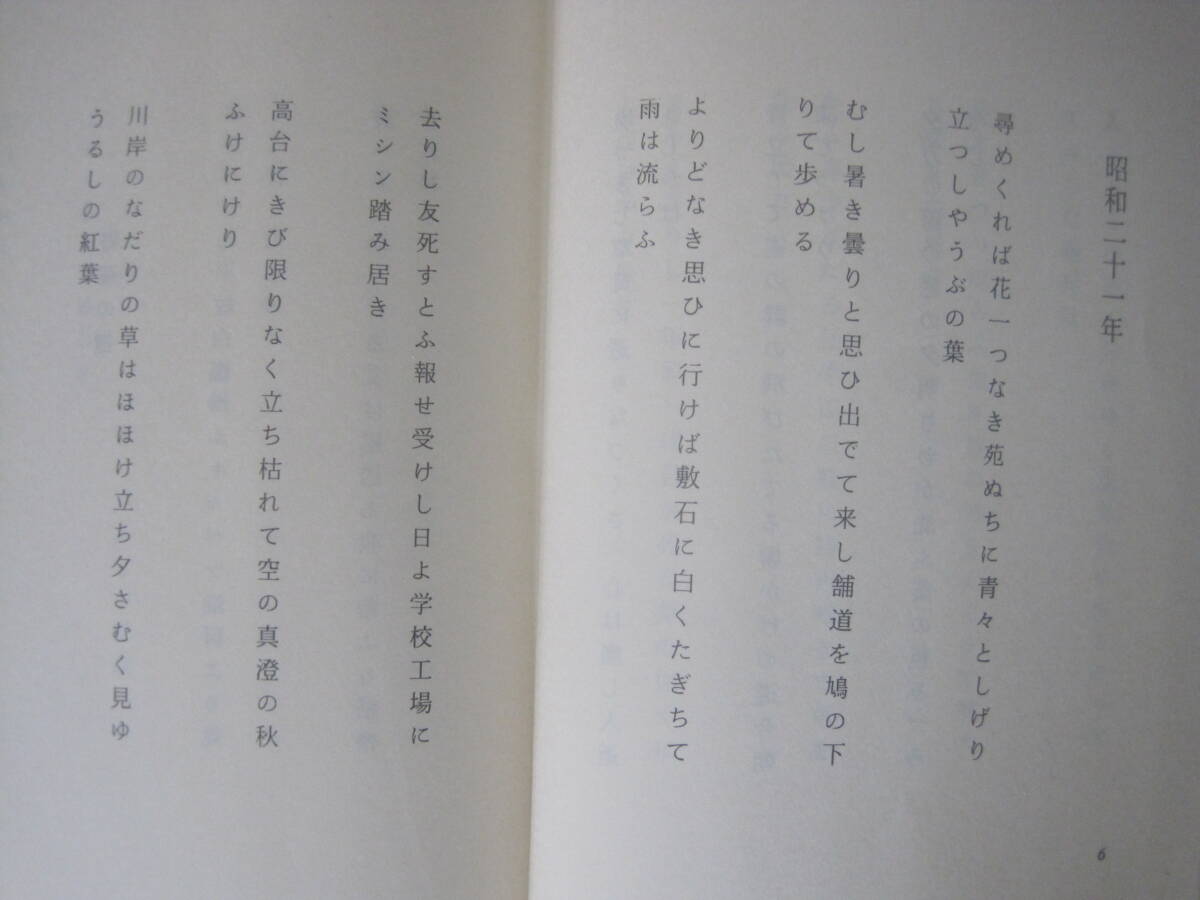 昭和二十一年
尋めくれば花一つなき苑ぬちに青々としげり
立つしやうぶの葉
むし暑き曇りと思ひ出でて来し舗道を鳩の下
りて歩める
よりどなき思ひに行けば敷石に白くたぎちて
雨は流らふ
6
去りし友死すとふ報せ受けし日よ学校工場に
ミシン踏み居き
高台にきび限りなく立ち枯れて空の真澄の秋
ふけにけり
川岸のなだりの草はほほけ立ち夕さむく見ゆ
うるしの紅葉